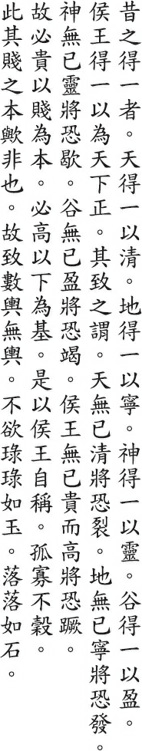 昔之得一者。天得一以清。地得一以寧。神得一以靈。谷得一以盈。
侯王得一以為天下正。其致之謂。天無已清將恐裂。地無已寧將恐發。
神無已靈將恐歇。谷無已盈將恐竭。侯王無已貴而高將恐蹶。
故必貴以賤為本。必高以下為基。是以侯王自稱。孤寡不穀。
此其賤之本歟非也。故致數輿無輿。不欲琭琭如玉。落落如石。